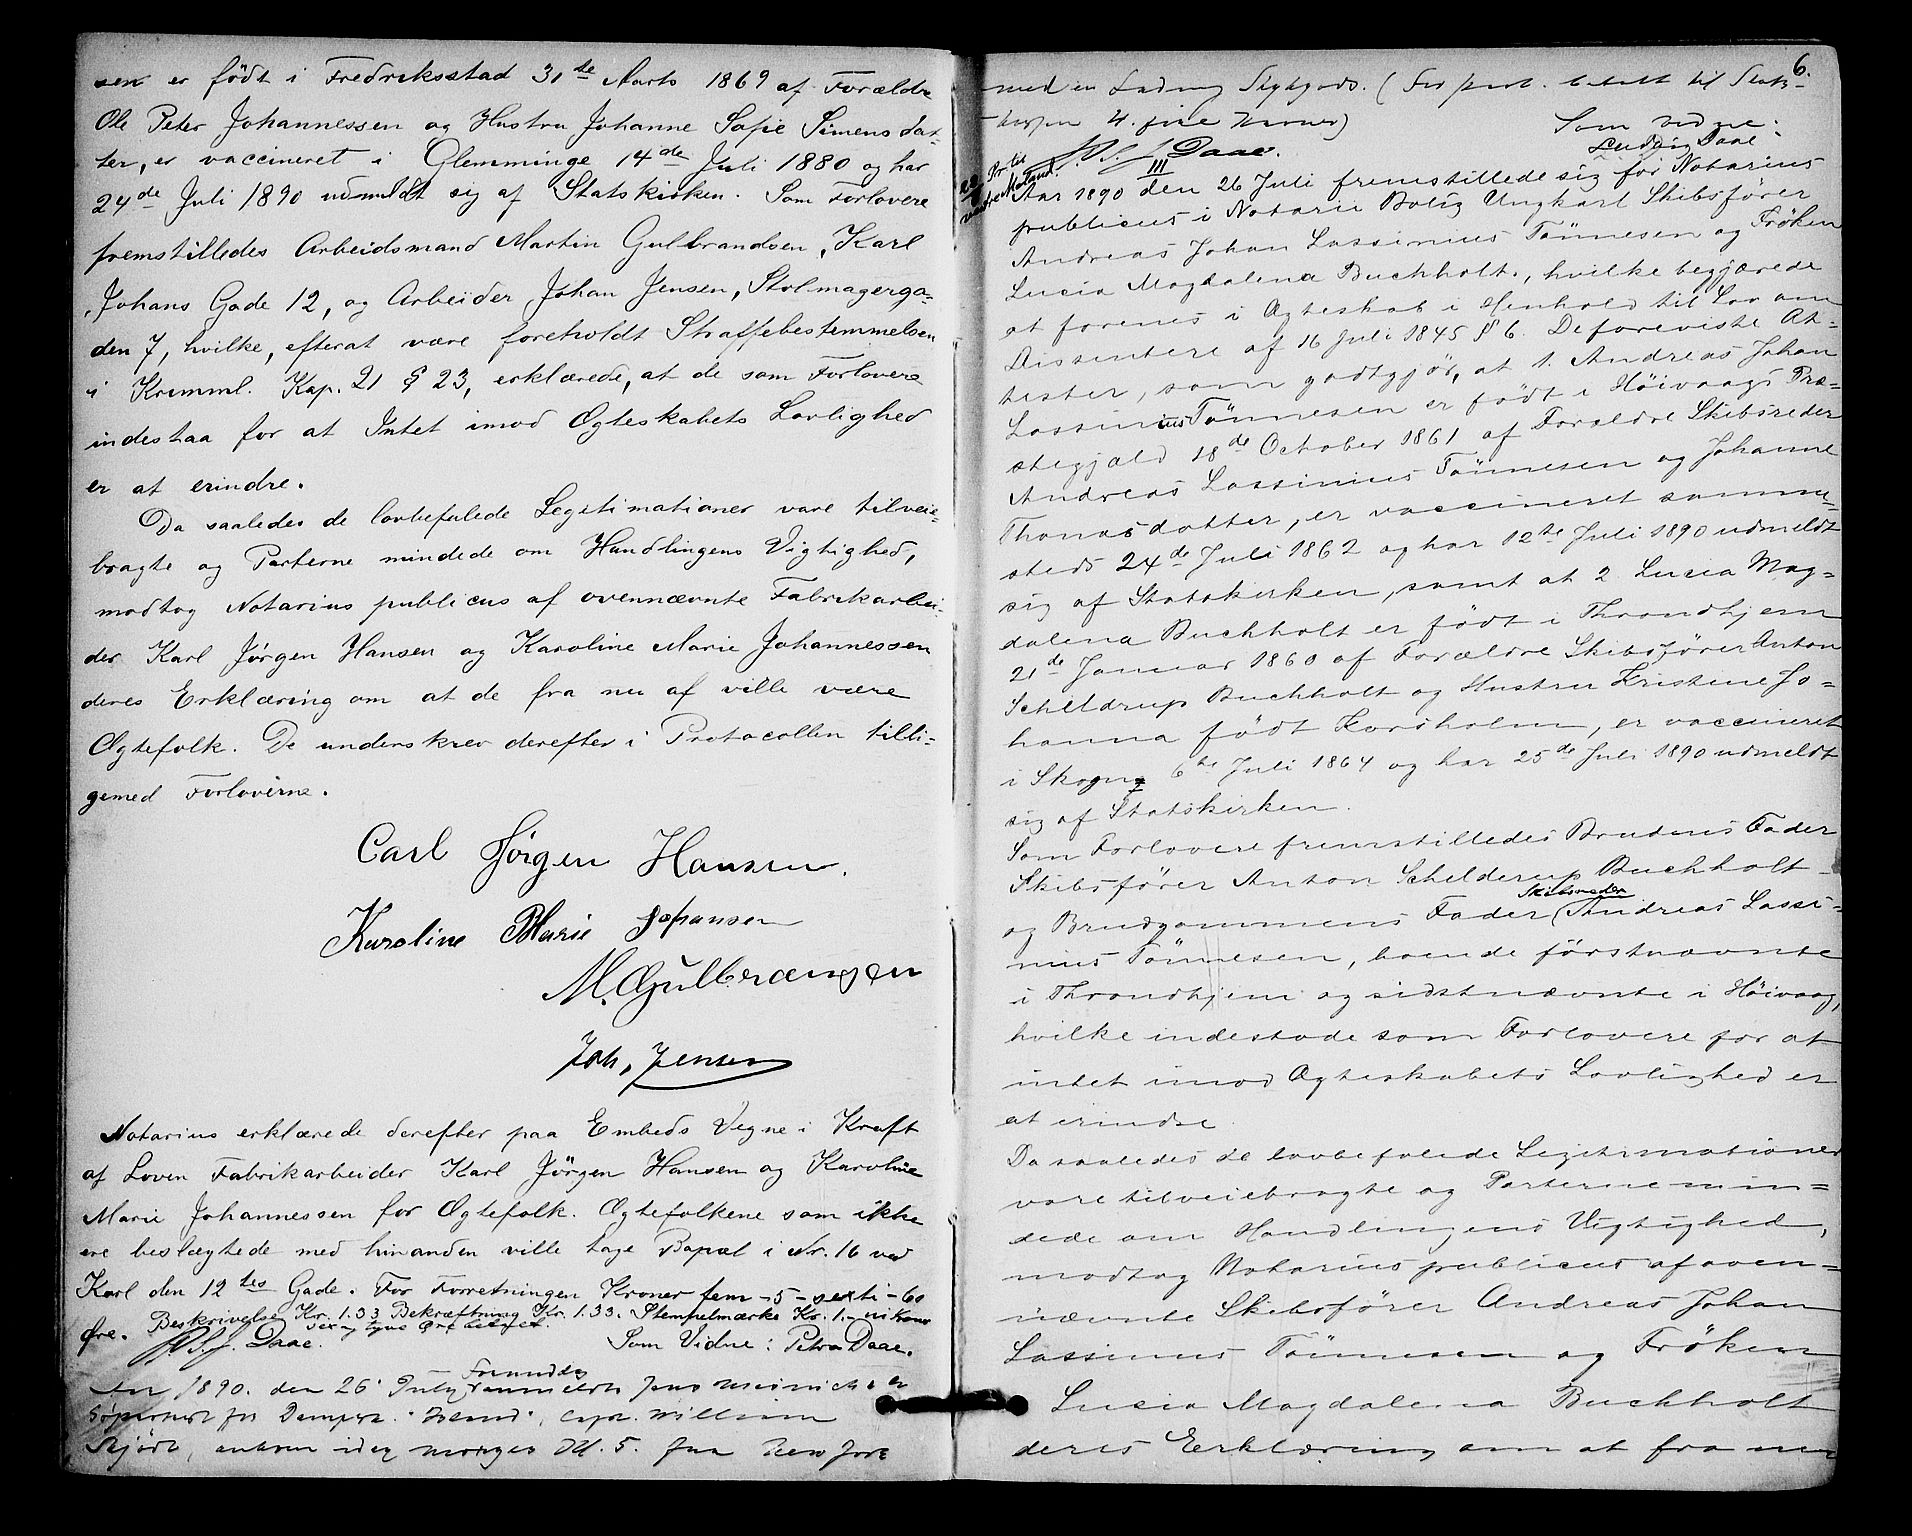 sen er født i Fredriksstad 31te Marts 1869 af Forældre
Ole Peter Johannessen og Hustru Johanne Sofie Simensdat-
ter, er vaccineret i Glemminge 14de Juli 1880 og har
24de Juli 1890 udmeldt sig af Statskirken. Som Forlovere
fremstilledes Arbeidsmand Martin Gulbrandsen, Karl
Johans Gade 12, og Arbeider Johan Jensen, Stolmagerga-
den 7, hvilke, efterat være foreholdt Straffebestemmelsen
i Kriminl. Kap. 21 § 23, erklærede, at de som Forlovere
indestaa for at Intet imod Ægteskabets Lovlighed
er at erindre.
Da saaledes de lovbefalede Legitimationer vare tilveie-
bragte og Parterne mindede om Handlingens Vigtighed,
modtog Notarius publicus af ovennævnte Fabrikarbei-
der Karl Jørgen Hansen og Karoline Marie Johannessen
deres Erklæring om at de fra nu af ville være
Ægtefolk. De underskrev derefter i Protocollen tilli-
gemed Forloverne.
Carl Jørgen Hansen.
Karoline Marie Johansen
M. Gulbrangsen
Joh, Jensen
Notarius erklærede derefter paa Embeds Vegne i Kraft
af Loven Fabrikarbeider Karl Jörgen Hansen og Karoline
Marie Johannessen for Ægtefolk. Ægtefolkene som ikke
ere beslægtede med hinanden ville tage Bopæl i Nr. 16 ved
Karl den 12tes Gade. For Forretningen Kroner fem -5- sexti -60
Øre. Beskrivelse Kr. 1.33 Bekræftning Kr. 1.33. Stempelmærke Kr. 1.- ni Kroner
sex og tyve Øre betalt.
Daae. Som Vidne: Petra Daae.
Aar 1890. den 26 July fremmødte Jens Meinich en
Søprotest for Dampsk. "Island", Capt. William
Skjødt, ankom idag morges Kl. 5. fra New York
6.
med en Ladning Stykgods. (For prot. betalt til Stats-
kassen 4. fire Kroner)
Som vidne:
Daae. Ludvig Daae
III
Aar 1890 den 26 Juli fremstillede sig for Notarius
publicus i Notarie Bolig Ungkarl Skibsfører
Andreas Johan Lassinius Tönnesen og Frøken
Lucia Magdalena Buchholt, hvilke begjærede
at forenes i Ægteskab i Henhold til Lov om
Dissentere af 16 Juli 1845 § 6. De foreviste At-
tester, som godtgjør, at 1. Andreas Johan
Lassinius Tönnesen er født i Høivaags Præ-
stegjæld 18de October 1861 af Forældre Skibsreder
Andreas Lassinius Tönnesen og Johanne
Thomasdatter, er vaccineret samme-
steds 24de Juli 1862 og har 12te Juli 1890 udmeldt
sig af Statskirken, samt at 2. Lucia Mag-
dalena Buchholt er født i Throndhjem
21de Januar 1860 af Forældre Skibsfører Anton
Scheldrup Buchholt og Hustru Kristine Jo-
hanna født Kordholm, er vaccineret
i Skogn 6te Juli 1864 og har 25de Juli 1890 udmeldt
sig af Statskirken.
Som Forlovere fremstilledes Brudens Fader
Skibsfører Anton Schelderup Buchholt
Skibsreder
og Brudgommens Fader Andreas Lassi-
nius Tönnesen, boende førstnævnte
i Throndhjem og sidstnævnte i Høivaag,
hvilke indestode som Forlovere for at
intet imod Ægteskabets Lovlighed er
at erindre
Da saaledes de lovbefalede Legitimationer
vare tilveiebragte og Parterne min-
dede om Handlingens Vigtighed,
modtog Notarius publicus af oven-
nævnte Skibsfører Andreas Johan
Lassinius Tönnesen og Frøken
Lucia Magdalena Buchholt
deres Erklæring om at fra nu